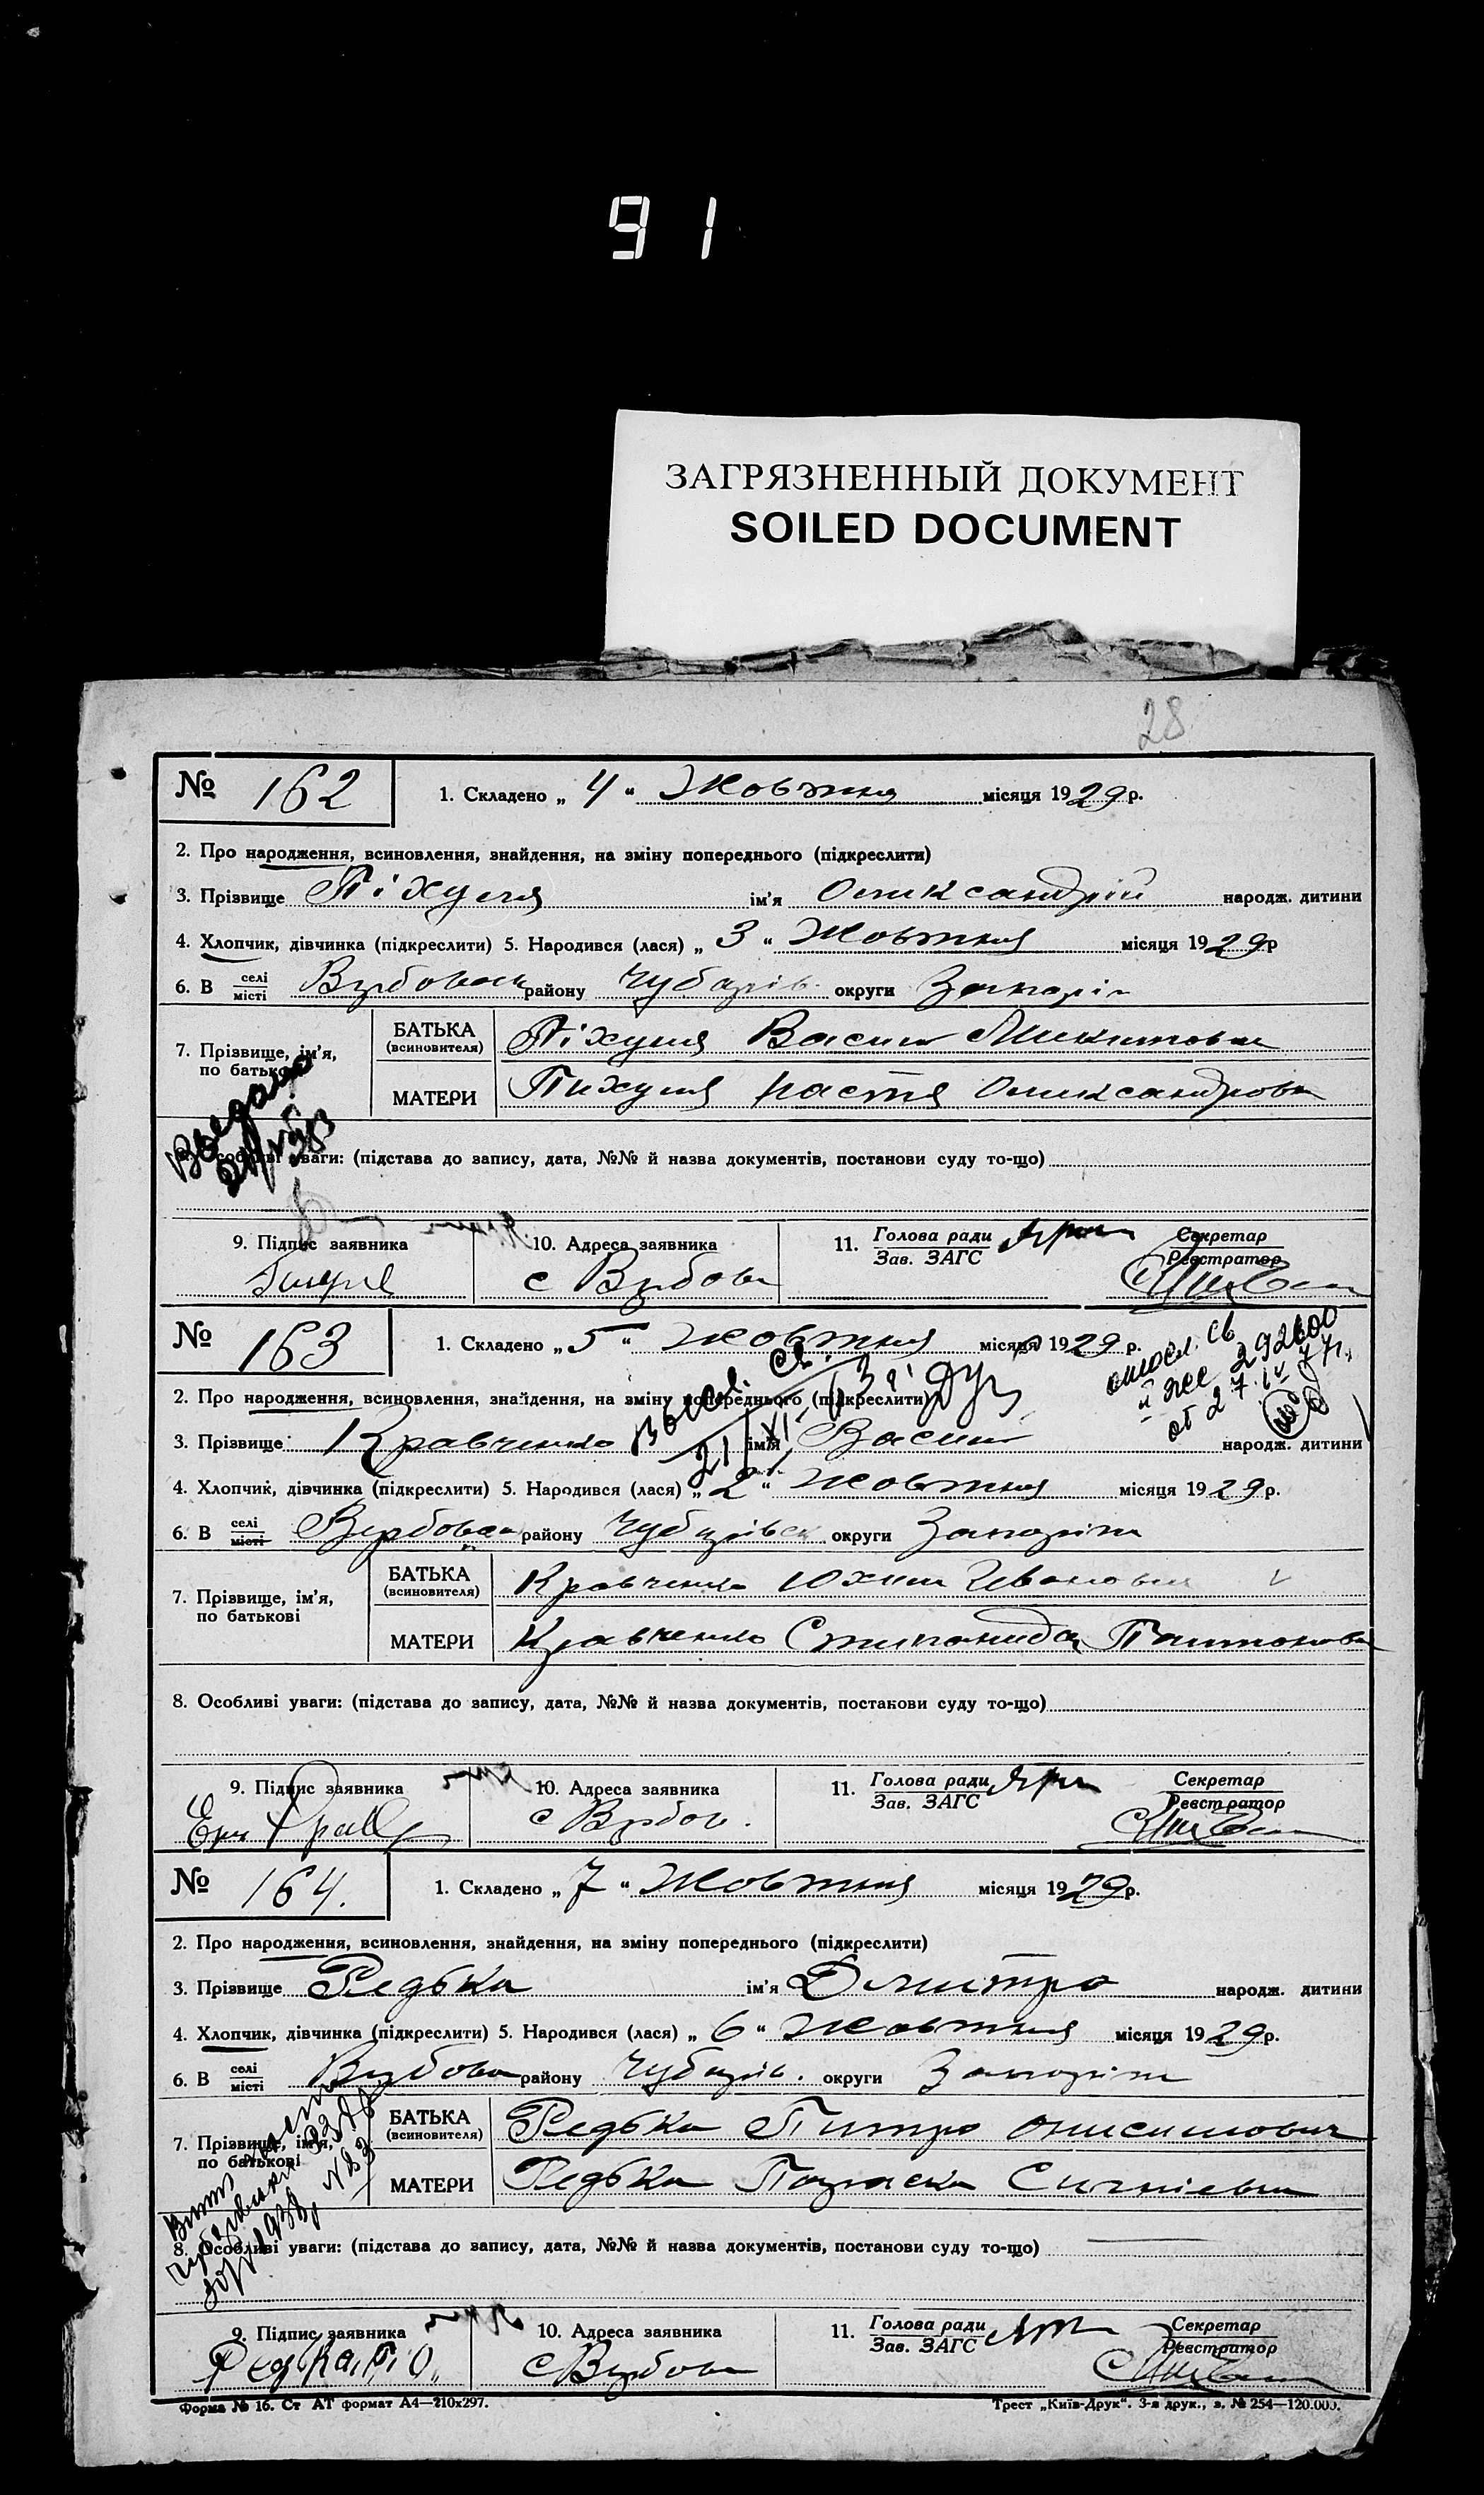 91
ЗАГРЯЗНЕННЫЙ ДОКУМЕНТ
SOILED DOCUMENT
28
№ 162 1. Складено „ 4 “ Жовтня місяця 1929 р.
2. Про народження, всиновлення, знайдення, на зміну попереднього (підкреслити)
3. Прізвище Піхуля ім'я Олександрій народж. дитини
4. Хлопчик, дівчинка (підкреслити) 5. Народився (лася) „ 3 “ Жовтня місяця 1929 р
6. В селі місті Вербовам району Чубарів. округи Запоріж
7. Прізвище, ім'я, по батькові
БАТЬКА (всиновителя) Піхуля Васил Микитович
МАТЕРИ Пихуля Настя Олександровн
8. Особливі уваги: (підстава до запису, дата, №№ й назва документів, постанови суду то-що)
9. Підпис заявника 10. Адреса заявника 11. Голова ради Зав. ЗАГС Секретар Реєстратор
с Вербова
№ 163 1. Складено „ 5 “ Жовтня місяця 1929 р.
2. Про народження, всиновлення, знайдення, на зміну попереднього (підкреслити)
3. Прізвище Кравченко ім'я Васил народж. дитини
4. Хлопчик, дівчинка (підкреслити) 5. Народився (лася) „ 2 “ Жовтня місяця 1929 р.
6. В селі місті Вербовам району Чубарівськ округи Запоріж
7. Прізвище, ім'я, по батькові
БАТЬКА (всиновителя) Кравченко Юхим Иванович
МАТЕРИ Кравченко Степанида
8. Особливі уваги: (підстава до запису, дата, №№ й назва документів, постанови суду то-що)
9. Підпис заявника 10. Адреса заявника 11. Голова ради Зав. ЗАГС Секретар Реєстратор
с Вербов.
№ 164. 1. Складено „ 7 “ Жовтня місяця 1929 р.
2. Про народження, всиновлення, знайдення, на зміну попереднього (підкреслити)
3. Прізвище Редька ім'я Дмитро народж. дитини
4. Хлопчик, дівчинка (підкреслити) 5. Народився (лася) „ 6 “ Жовтня місяця 1929 р.
6. В селі місті Вербова району Чубарів. округи Запоріж
7. Прізвище, ім'я, по батькові
БАТЬКА (всиновителя) Редька Питро Онисимович
МАТЕРИ Редька Параска
8. Особливі уваги: (підстава до запису, дата, №№ й назва документів, постанови суду то-що)
9. Підпис заявника 10. Адреса заявника 11. Голова ради Зав. ЗАГС Секретар Реєстратор
Редька П.О. с Вербова
Форма № 16. Ст АТ формат А4—210x297. Трест „Київ-Друк“. 3-я друк., з. № 254—120.000.